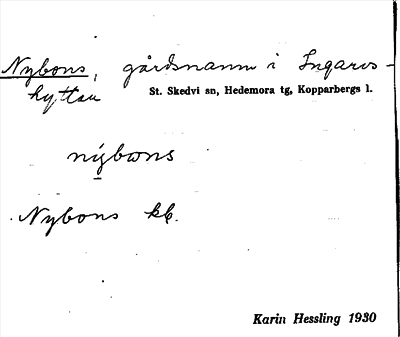 Nybons, gårdsnamn i Ingarvs-
hyttan
St. Skedvi sn, Hedemora tg, Kopparbergs l.
nýbωns
Nybons kb.
Karin Hessling 1930